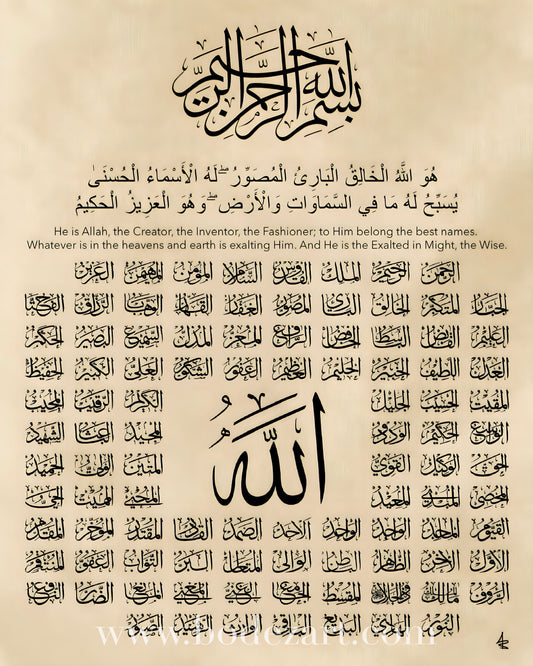 بسم الله الرحمن الرحيم
هُوَ اللَّهُ الْخَالِقُ الْبَارِئُ الْمُصَوِّرُ ۖ لَهُ الْأَسْمَاءُ الْحُسْنَىٰ
يُسَبِّحُ لَهُ مَا فِي السَّمَاوَاتِ وَالْأَرْضِ ۖ وَهُوَ الْعَزِيزُ الْحَكِيمُ
He is Allah, the Creator, the Inventor, the Fashioner; to Him belong the best names.
Whatever is in the heavens and earth is exalting Him. And He is the Exalted in Might, the Wise.
الرحمن الرحيم الملك القدوس السلام المؤمن المهيمن العزيز
الجبار المتكبر الخالق البارئ المصور الغفار القهار الوهاب الرزاق الفتاح
العليم القابض الباسط الخافض الرافع المعز المذل السميع البصير الحكم
العدل اللطيف الخبير الحليم العظيم الغفور الشكور العلي الكبير الحفيظ
المقيت الحسيب الجليل الكريم الرقيب المجيب
الله
الواسع الحكيم الودود المجيد الباعث الشهيد
الحق الوكيل القوي المتين الولي الحميد
المحصي المبدئ المعيد المحيي المميت الحي
القيوم الماجد الواجد الواحد الاحد الصمد القادر المقتدر المؤخر
الأول الآخر الظاهر الباطن الوالي المتعال البر التواب العفو المنتقم
الرؤوف مالك الملك ذو الجلال والإكرام المقسط الجامع الغني المغني المانع الضار النافع
النور الهادي البديع الباقي الوارث الرشيد الصبور
www.bodczart.com